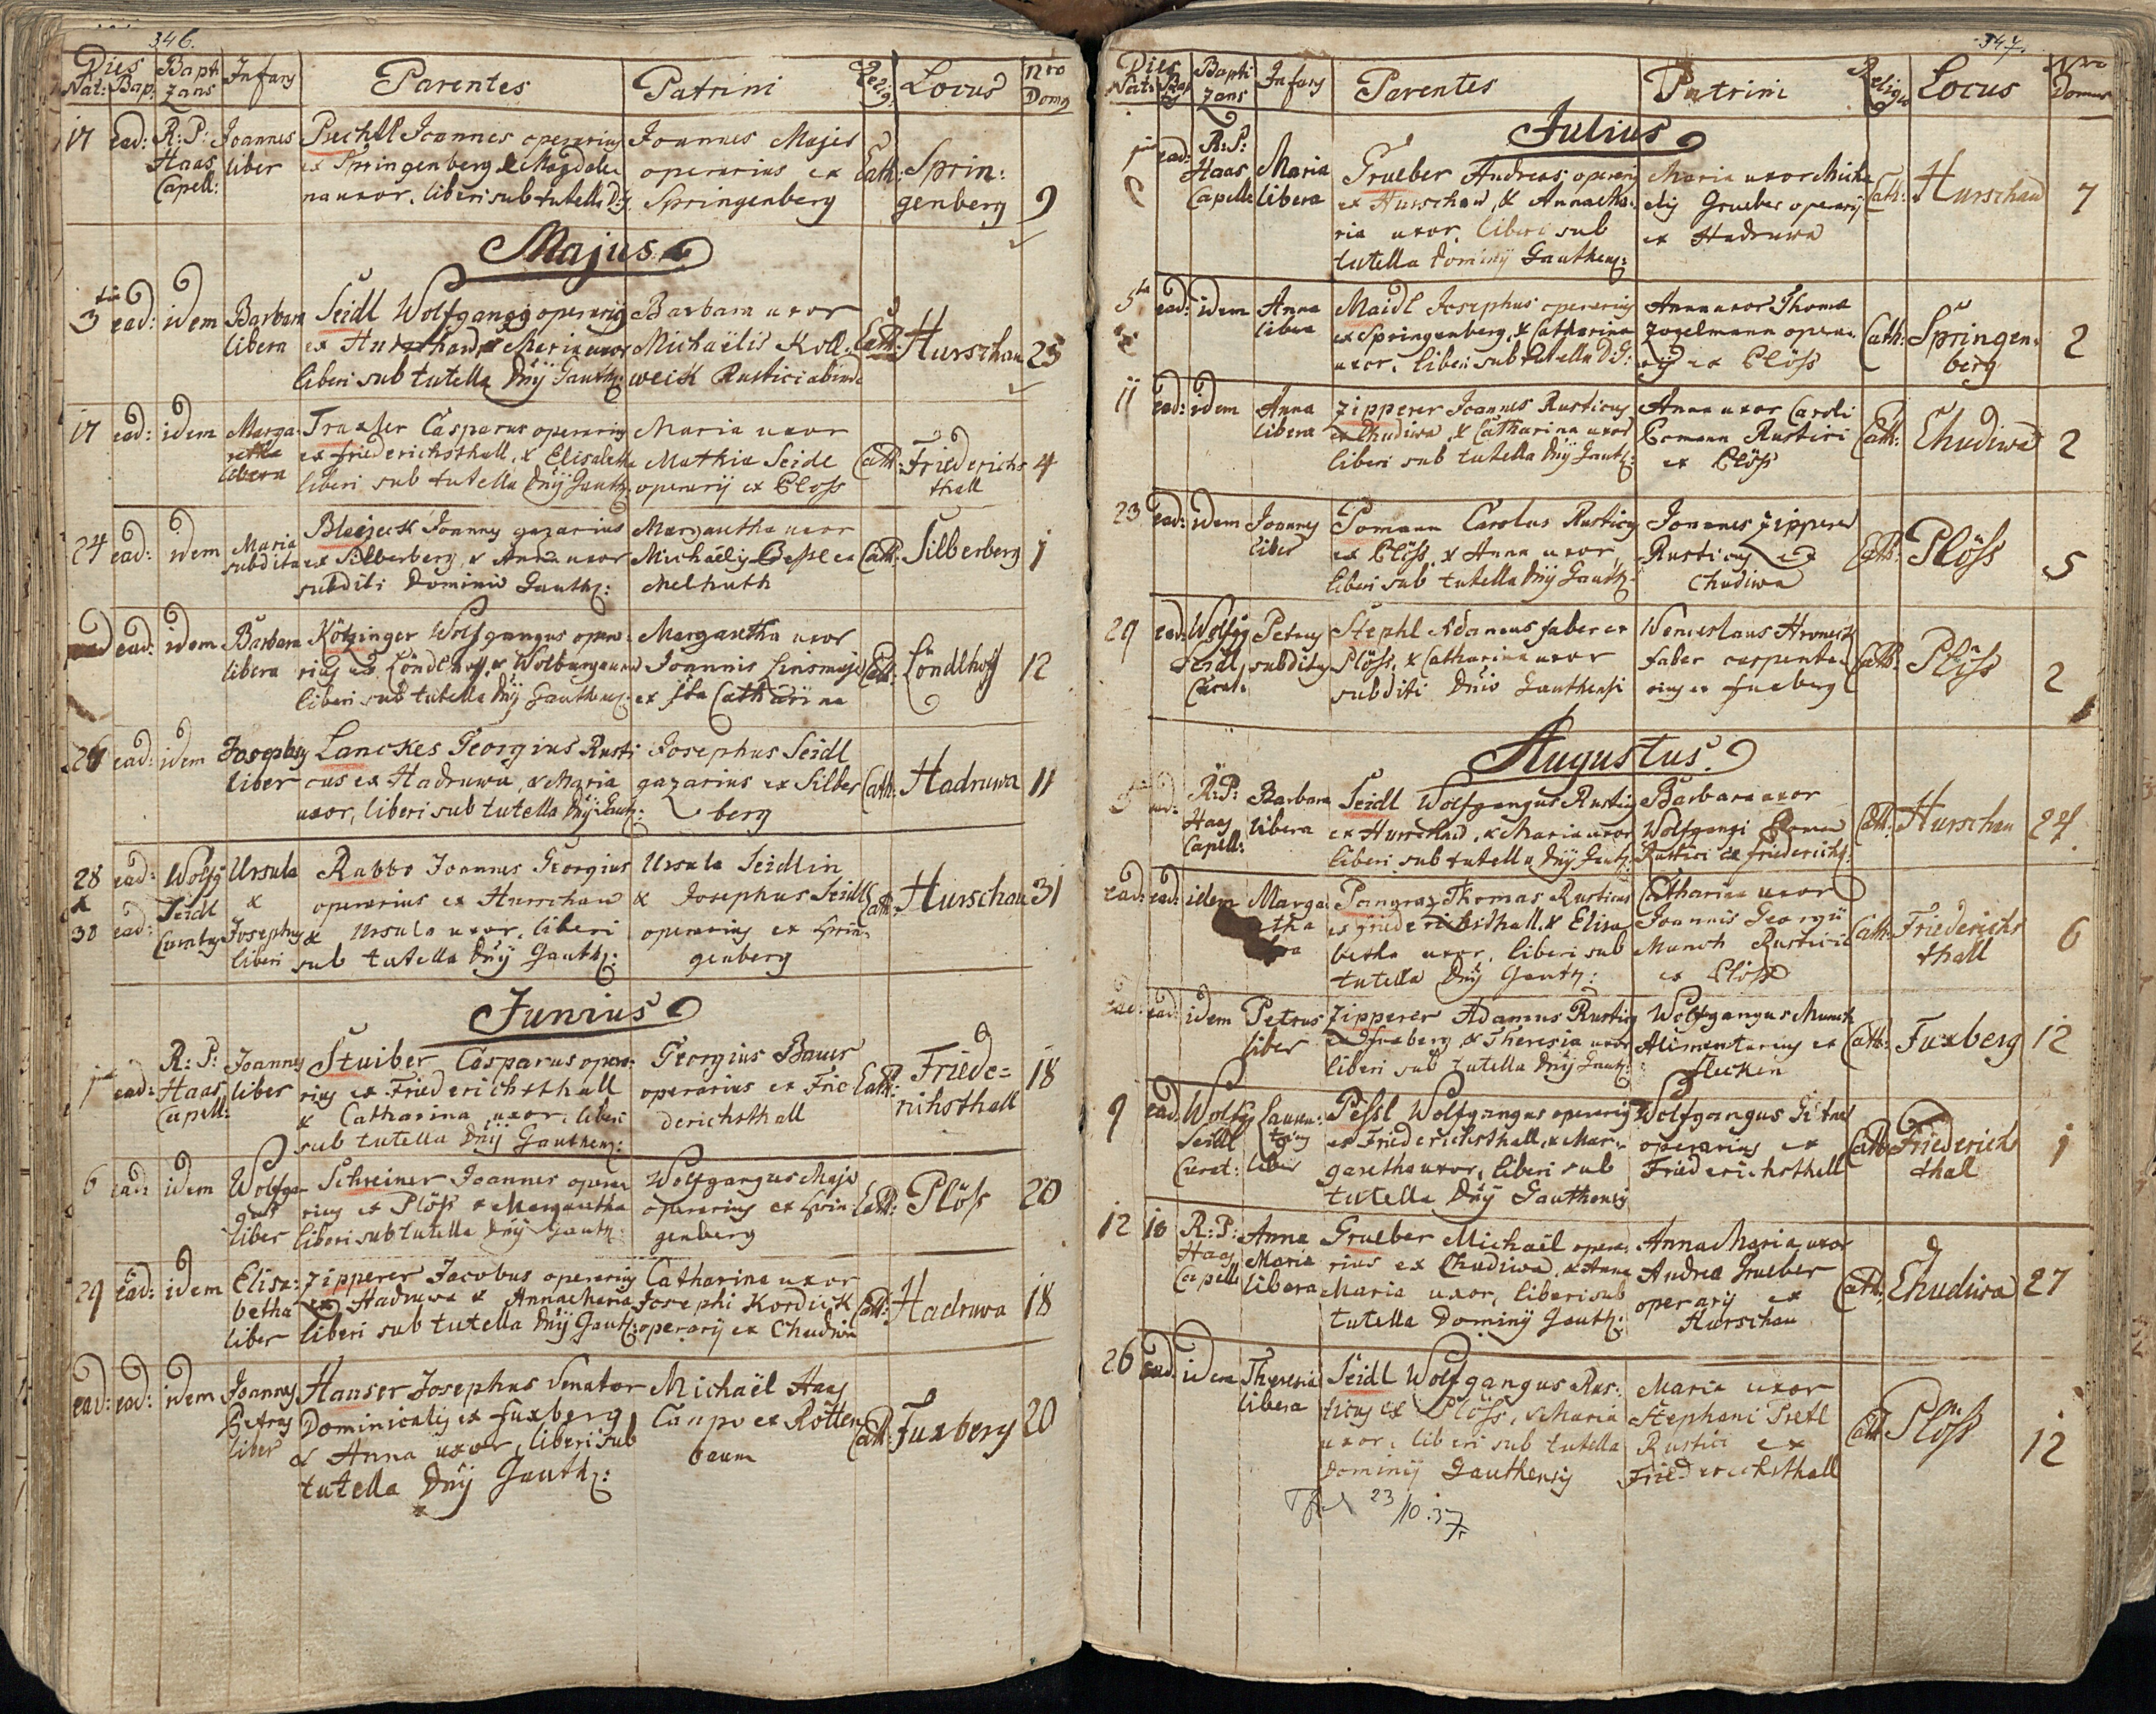 346.
Dies Nat: Bap: Bapti zans Infans Parentes Patrini Relig: Locus Nro Domus
17 ead: R: P: Haas Capell: Joannes liber
Puchtl Joannes operarius
ex Springenberg & Magdale
na uxor, liberi sub tutella D: G.
Joannes Majer
operarius ex
Springenberg
Cath: Sprin:
genberg 9
Majus
3tia ead: idem Barbara libera
Seidl Wolfgangg operarius
ex Hurschau, & Maria uxor
liberi sub tutella Dnÿ Gauth:
Barbara uxor
Michaëlis Koll
weick Rustici abinde
Cath: Hurschau 25
17 ead: idem Marga
retha
libera
Traxler Casparus operarius
ex friederichsthall, & Elisabetha
liberi sub tutella Dnÿ Gauth:
Maria uxor
Mathiæ Seidl
operarÿ ex Ploss
Cath: Friederichs
thall 4
24 ead: idem Maria
subdita
Blaejeck Joannes gazarius
ex Silberberg & Anna uxor
subditi Dominio Gauth:
Margaretha uxor
Michaëlis ex
Melhuth
Cath: Silberberg 1
ead: ead: idem Barbara
libera
Kötzinger Wolfgangus opera
rius ex Löndlhoff, & Wolburga uxor
liberi sub tutella Dnÿ Gauthens:
Margaretha uxor
Joannis Linsmajer
ex Sta Catharina
Cath: Löndlhoff 12
26 ead: idem Josephus
liber
Lanckes Georgius Rusti
cus ex Hadruwa, & Maria
uxor, liberi sub tutella Dnÿ Gauth:
Josephus Seidl
gazarius ex Silber
berg
Cath: Hadruwa 11
28 & 30 ead: ead: Wolfg Seidl Curatus Ursula
&
Josephus
liberi
Rabbo Joannes Georgius
operarius ex Hurschau
& Ursula uxor, liberi
sub tutella Dnÿ Gauth:
Ursula Seidlin
& Josephus Seidl
operarius ex Sprin
genberg
Cath: Hurschau 31
Junius
1ma ead: R: P: Haas Capell: Joannes
liber
Stuiber Casparus opera:
rius ex Friederichsthall
& Catharina uxor, liberi
sub tutella Dnÿ Gauthens:
Georgius Bauer
operarius ex Frie
derichsthall
Cath: Friede=
richsthall 18
6 ead: idem Wolfga
gus
liber
Schreiner Joannes opera
rius ex Plöss & Margaretha
liberi sub tutella Dnÿ Gauth:
Wolfgangus Majer
operarius ex Sprin
genberg
Cath: Plöss 20
29 ead: idem Elisa:
betha
liber
Zipperer Jacobus operarius
ex Hadruwa & Anna Maria
liberi sub tutella Dnÿ Gauth:
Catharina uxor
Josephi Kordick
operarÿ ex Chudiwa
Cath: Hadruwa 18
ead: ead: idem Joannes
Petrus
liber
Hauser Josephus Senator
Dominicalis ex fuxberg
& Anna uxor, liberi sub
tutella Dnÿ Gauth:
Michaël Haas
Caupo ex Rotten
baum
Cath: Fuxberg 20
347.
Dies Nat: Bap Bapti zans Infans Parentes Patrini Religio Locus Nro Domus
Julius
1ma ead: R: P: Haas Capell: Maria
libera
Grueber Andreas operarius
ex Hurschau, & Anna Ma:
ria uxor, liberi sub
tutella Dominÿ Gauthens:
Maria uxor Micha
elis Grueber operarÿ
ex Hadruwa
Cath: Hurschau 7
5ta ead: idem Anna
libera
Maidl Josephus operarius
ex Springenberg, & Catharina
uxor, liberi sub tutella D: G:
Anna uxor Thomæ
Zogelmann opera
rÿ ex Plöss
Cath: Springen:
berg 2
11 ead: idem Anna
libera
Zipperer Joannes Rusticus
ex Chudiwa, & Catharina uxor
liberi sub tutella Dnÿ Gauth:
Anna uxor Caroli
Pomann Rustici
ex Plöss
Cath: Chudiwa 2
23 ead: idem Joannes
liber
Pomann Carolus Rusticus
ex Plöss, & Anna uxor
liberi sub tutella Dnÿ Gauth:
Joannes Zipperer
Rusticus ex
Chudiwa
Cath: Plöss 5
29 ead: Wolfgg Seidl Curat: Petrus
subditus
Stephl Adamus faber ex
Plöss, & Catharina uxor
subditi Dnio Gauthensi
Wenceslaus Hroneck
faber carpenta
rius ex fuxberg
Cath: Plöss 2
Augustus
5 ead: R: P: Haas Capell: Barbara
libera
Seidl Wolfgangus Rusticus
ex Hurschau, & Maria uxor
liberi sub tutella Dnÿ Gauth:
Barbara uxor
Wolfgangi
Rustici ex friederichs:
Cath: Hurschau 24
ead: ead: idem Marga
tha
Pangraz Thomas Rusticus
ex friederichsthall, & Elisa
betha uxor, liberi sub
tutella Dnÿ Gauth:
Catharina uxor
Joannis Georgii
Munch Rustici
ex Plöss
Cath: Friederichs
thall 6
ead: ead: idem Petrus
liber
Zipperer Adamus Rusticus
ex fuxberg & Theresia uxor
liberi sub tutella Dnÿ Gauth:
Wolfgangus Munch
Alimentarius ex
flecken
Cath: Fuxberg 12
9 ead: Wolfg Seidl Curat: Lauren:
tius
liber
Pessl Wolfgangus operarius
ex Friederichsthall, & Mar
garetha uxor, liberi sub
tutella Dnÿ Gauthensis
Wolfgangus
operarius ex
Friederichsthall
Cath: Friederichs
thal 1
12 io R: P: Haas Capell: Anna
Maria
libera
Grueber Michaël opera
rius ex Chudiwa, & Anna
Maria uxor, liberi sub
tutella Dominÿ Gauth:
Anna Maria uxor
Andreæ Grueber
operarÿ ex
Hurschau
Cath: Chudiwa 27
26 ead: idem Theresia
libera
Seidl Wolfgangus Rus:
ticus ex Plöss, & Maria
uxor, liberi sub tutella
Dominÿ Gauthensis
Maria uxor
Stephani Pretl
Rustici ex
Friederichsthall
Cath: Plöss 12
23/10.37.